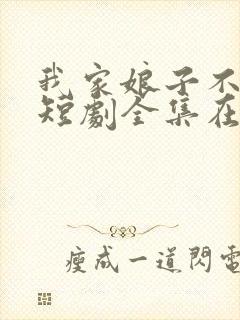 我家娘子不
短劇全集在
瘦成一道閃電